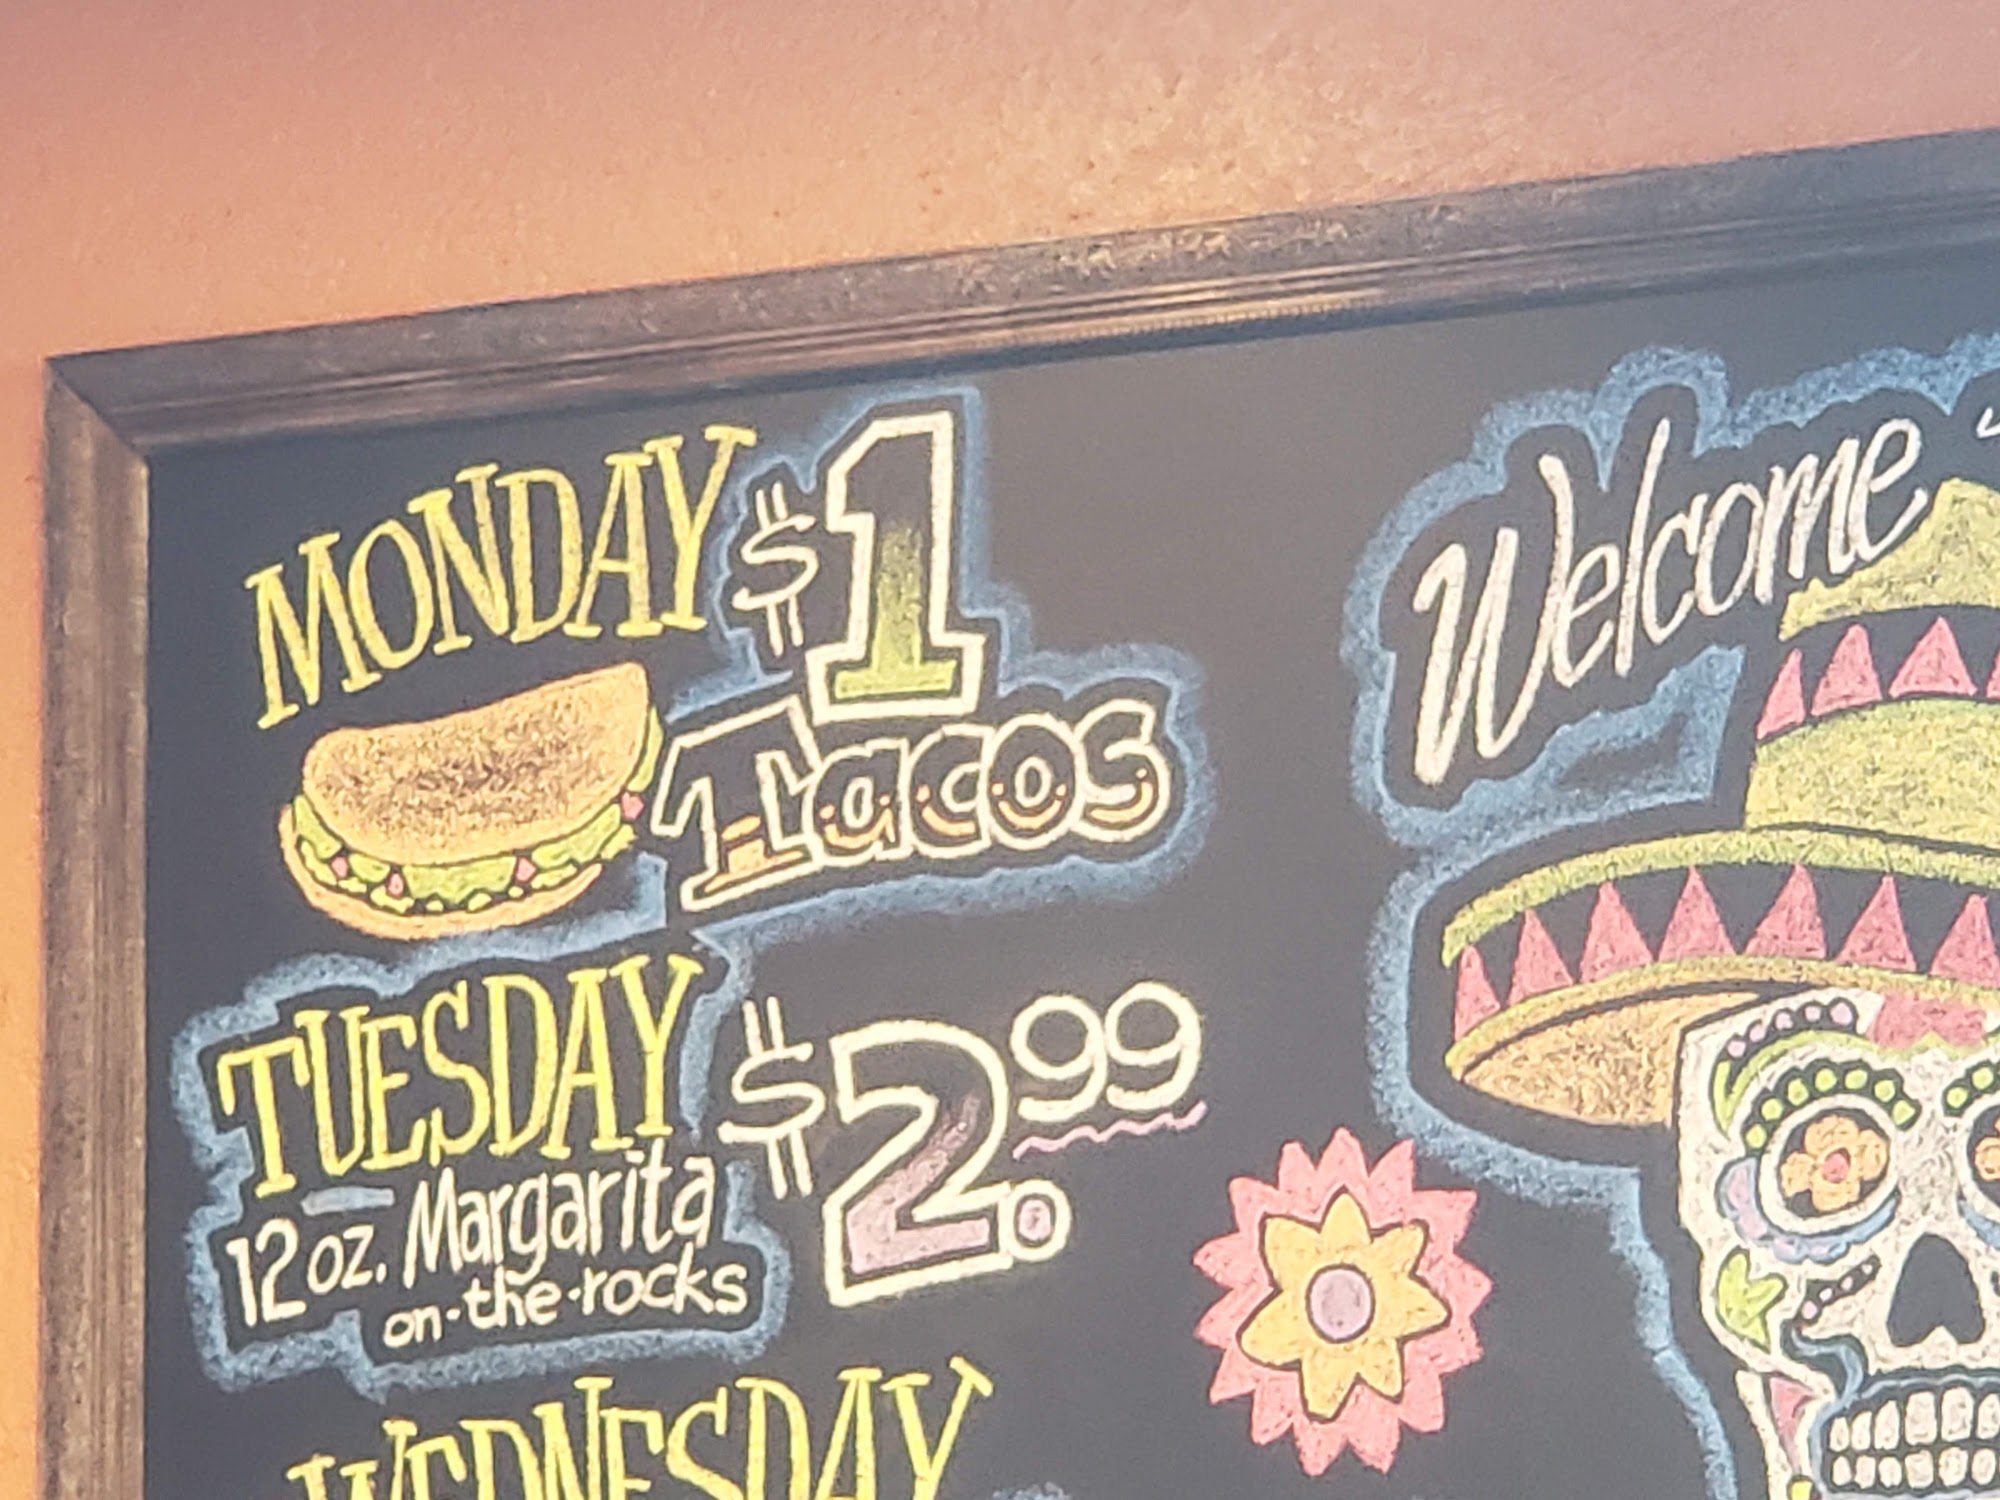 MONDAY $1
Tacos
TUESDAY $2.99
12 oz. Margarita
on-the-rocks
WEDNESDAY
Welcome